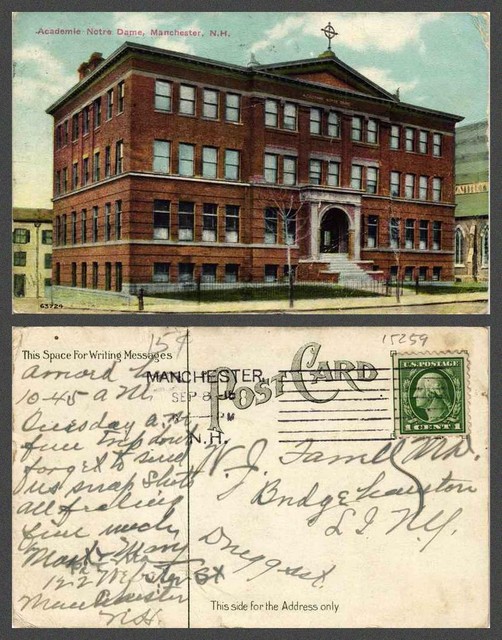 Academie Notre Dame, Manchester, N.H.
63724
This Space For Writing Messages
15¢
15259
POST CARD
MANCHESTER,
SEP 8
PM
N.H.
U.S. POSTAGE
1 CENT 1
10-45 A M
Tuesday a.m
fine trip down
forget to send
us snap shots
all feeling
fine much
Mary
122 Webster St
Manchester
N.H.
N. J. Farrell Md.
Bridgehampton
L I N.Y.
Druggist.
This side for the Address only